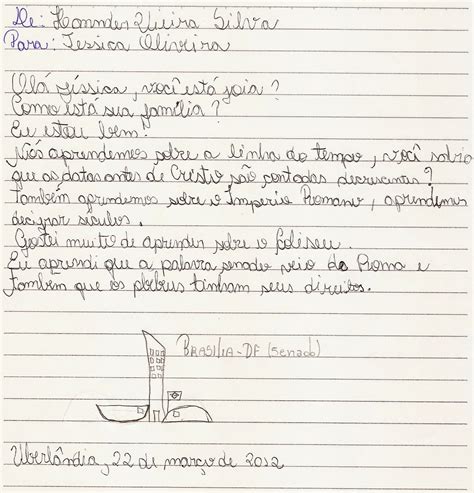 De: Hommder Vieira Silva
Para: Jessica Oliveira
Olá Jéssica, você está joia?
Como está sua família?
Eu estou bem!
Nós aprendemos sobre a linha do tempo, você sabia
que as datas antes de Cristo são contadas decrescentes?
Também aprendemos sobre o Império Romano, aprendemos
decifrar séculos.
Gostei muito de aprender sobre o Coliseu.
Eu aprendi que a palavra senado veio de Roma e
também que os plebeus tinham seus direitos.
BRASÍLIA-DF (senado)
Uberlândia, 22 de março de 2012